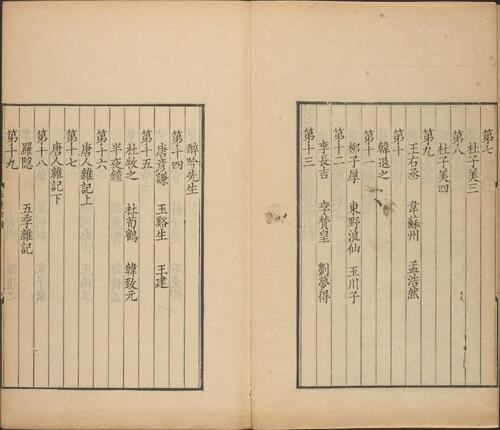 第七
杜子美三
第八
杜子美四
第九
王右丞 韋蘇州 孟浩然
第十
韓退之
第十一
柳子厚 東野浪仙 玉川子
第十二
李長吉 李贊皇 劉夢得
第十三
醉吟先生
第十四
唐彦謙 玉谿生 王建
第十五
杜牧之 杜荀鶴 韓致元
半夜鐘
第十六
唐人雜記上
第十七
唐人雜記下
第十八
羅隠 五季雜記
第十九